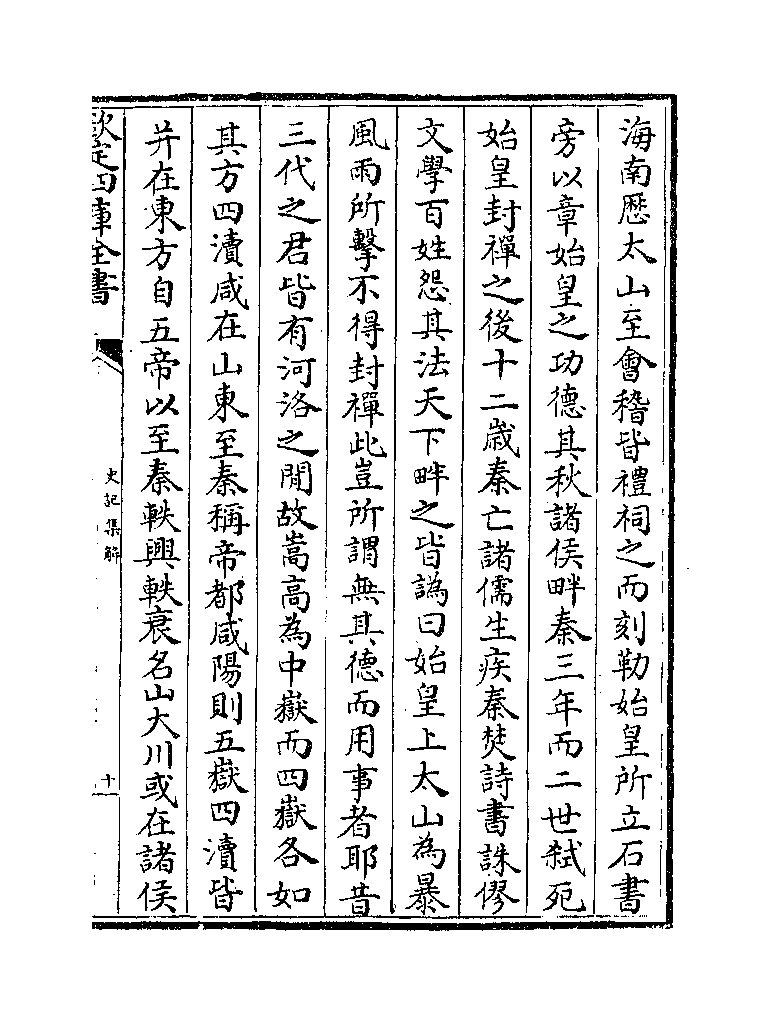 海南歴太山至㑹稽皆禮祠之而刻勒始皇所立石書
旁以章始皇之功德其秋諸侯畔秦三年而二世弑死
始皇封禪之後十二嵗秦亡諸儒生疾秦焚詩書誅僇
文學百姓怨其法天下畔之皆譌曰始皇上太山為暴
風雨所擊不得封禪此豈所謂無其德而用事者耶昔
三代之君皆有河洛之閒故嵩高為中嶽而四嶽各如
其方四瀆咸在山東至秦稱帝都咸陽則五嶽四瀆皆
并在東方自五帝以至秦軼興軼衰名山大川或在諸侯
欽定四庫全書
史記集解
十